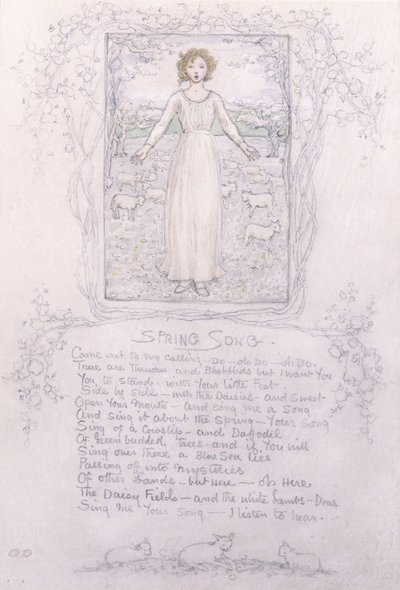 SPRING SONG.
Come out to my calling - Do - oh Do - oh Do -
There are Thrushes and Blackbirds but I want You
You to stand - with Your little Feet -
Side by side - with the Daisies - and sweet
Open Your Mouth - and sing me a Song
And sing it about the Spring - Your Song
Sing of a Cowslip - and Daffodil
Of Green budded Trees - and if You will
Sing over There a Blue Sea lies
Passing off into Mysteries
Of other Lands - but Here - oh Here
The Daisy Fields - and the white Lambs - Dear
Sing me Your Song - I listen to hear.